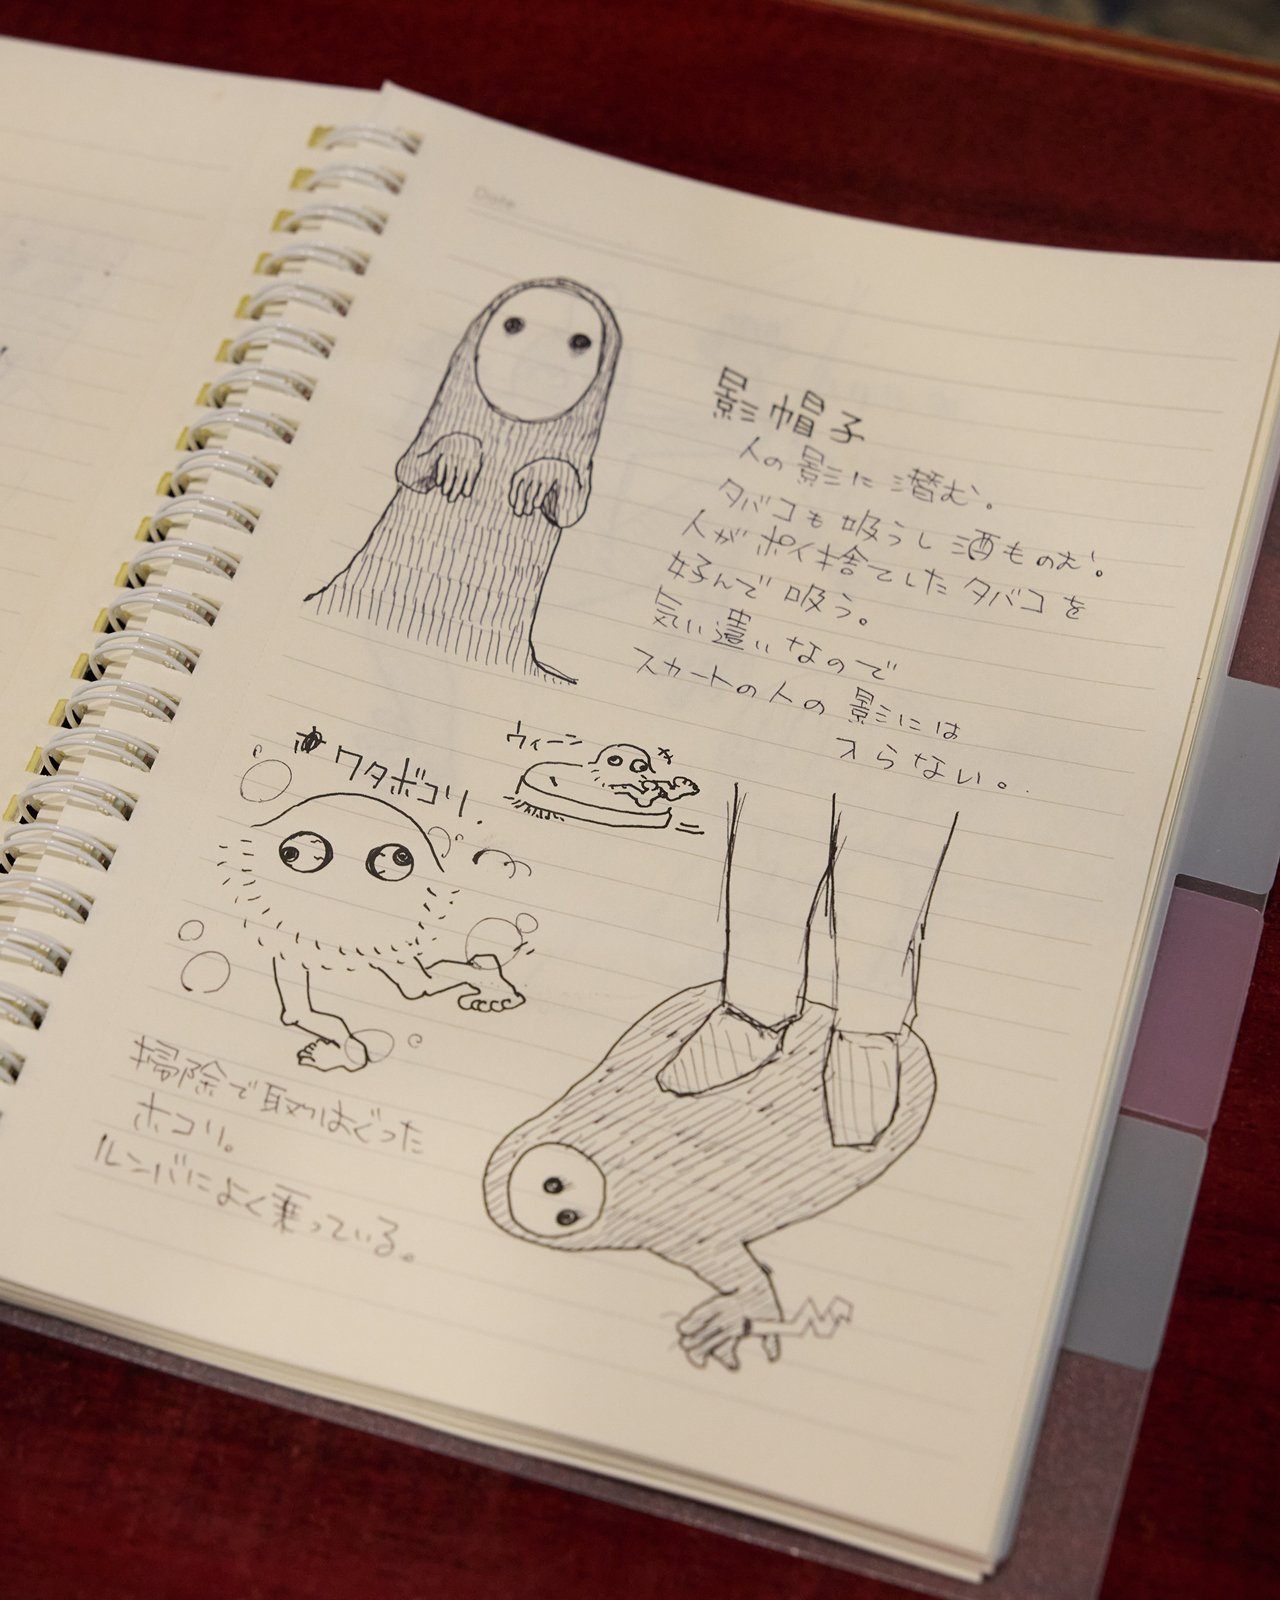 Date
影帽子
人の影に潜む。
タバコも吸うし酒ものむ。
人がポイ捨てしたタバコを
好んで吸う。
気い遣いなので
スカートの人の影には
入らない。
ワタボコリ.
ウィーン
掃除で取りはぐった
ホコリ。
ルンバによく乗っている。